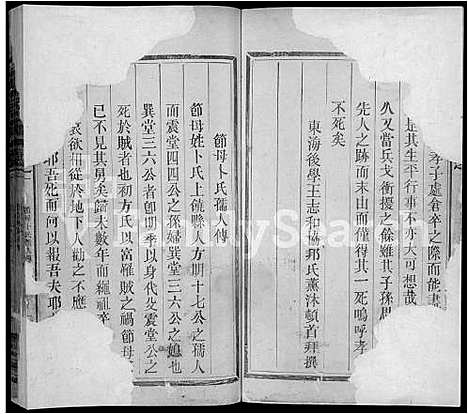 孝子處倉卒之際而能盡
是其生平行事不亦大可想哉
久又當兵戈衝擾之餘雖其子孫思
先人之跡而末由而僅得其一死嗚呼孝
不死矣
東海後學王志和協邦氏薰沐頓首拜撰
節母卜氏孺人傳
節母姓卜氏上饒縣人方期十七公之孺人
而震堂四四公之孫婦巽堂三六公之媳也
巽堂三六公者卽期季以身代父震堂公之
死於賊者也初方氏以富罹賊之禍節母
已不見其舅矣歸未數年而繩祖卒
哀欲相從於地下人勸之不應
耶吾死而何以報吾夫耶
FamilySearch